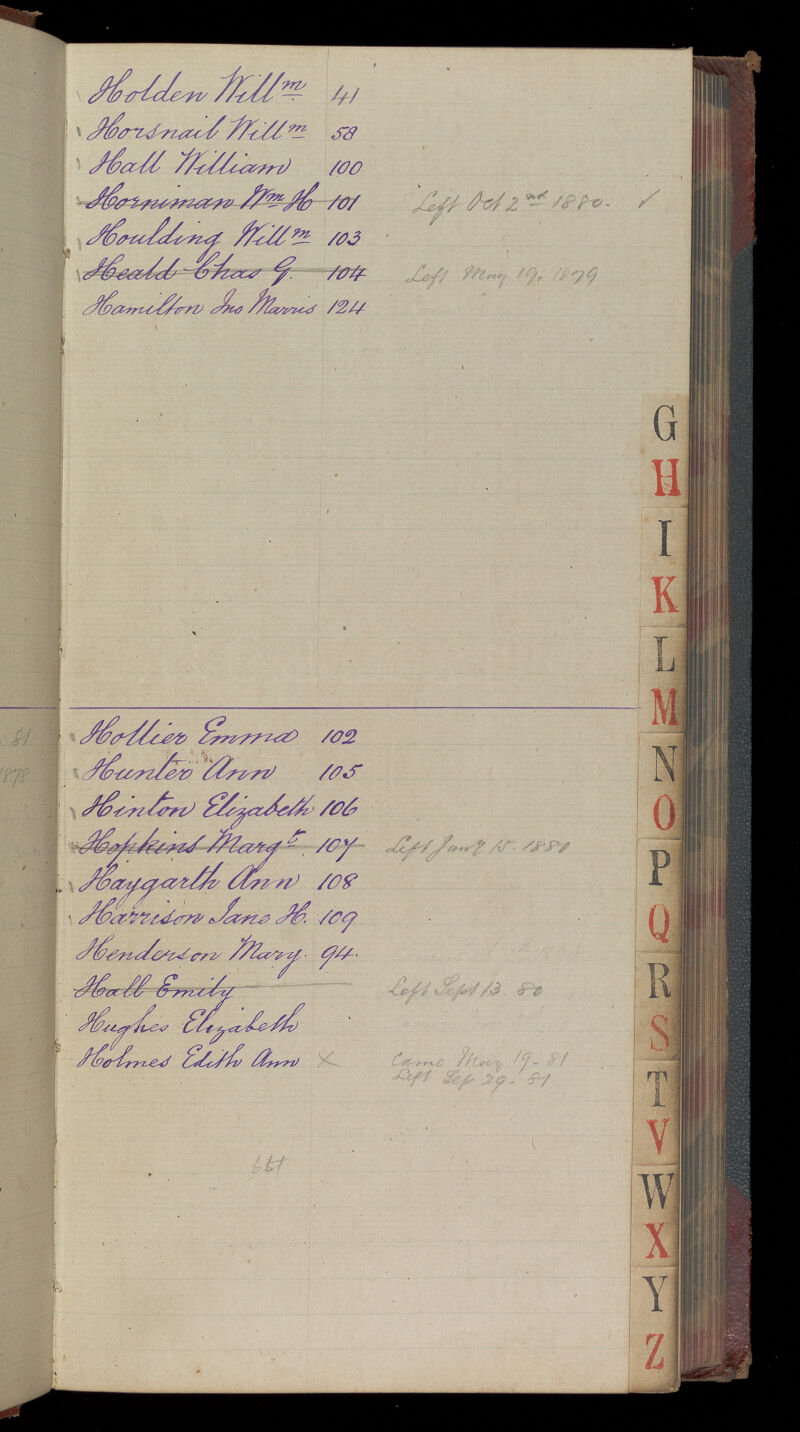 Holden Willm 41
Horsnail Willm 58
Hall William 100
Horniman Wm H 101 Left Oct 2nd 1880. ✓
Houlding Willm 103
Heald Chas G. 104 Left May 19. 1879
Hamilton Jno Marris 124
G
H
I
K
L
M
Hollier Emma 102
81
N
Hunter Ann 105
1878
Hinton Elizabeth 106
O
Hopkins Margt 107 Left Jany 15. 1880
P
Haygarth Ann 108
Harrison Jane H. 109
Q
Henderson Mary. 94.
Hall Emily Left Sept 13. 80
R
Hughes Elizabeth
S
Holmes Edith Ann × Came May 19-81
Left Sep 29-81
T
V
651
W
X
Y
Z